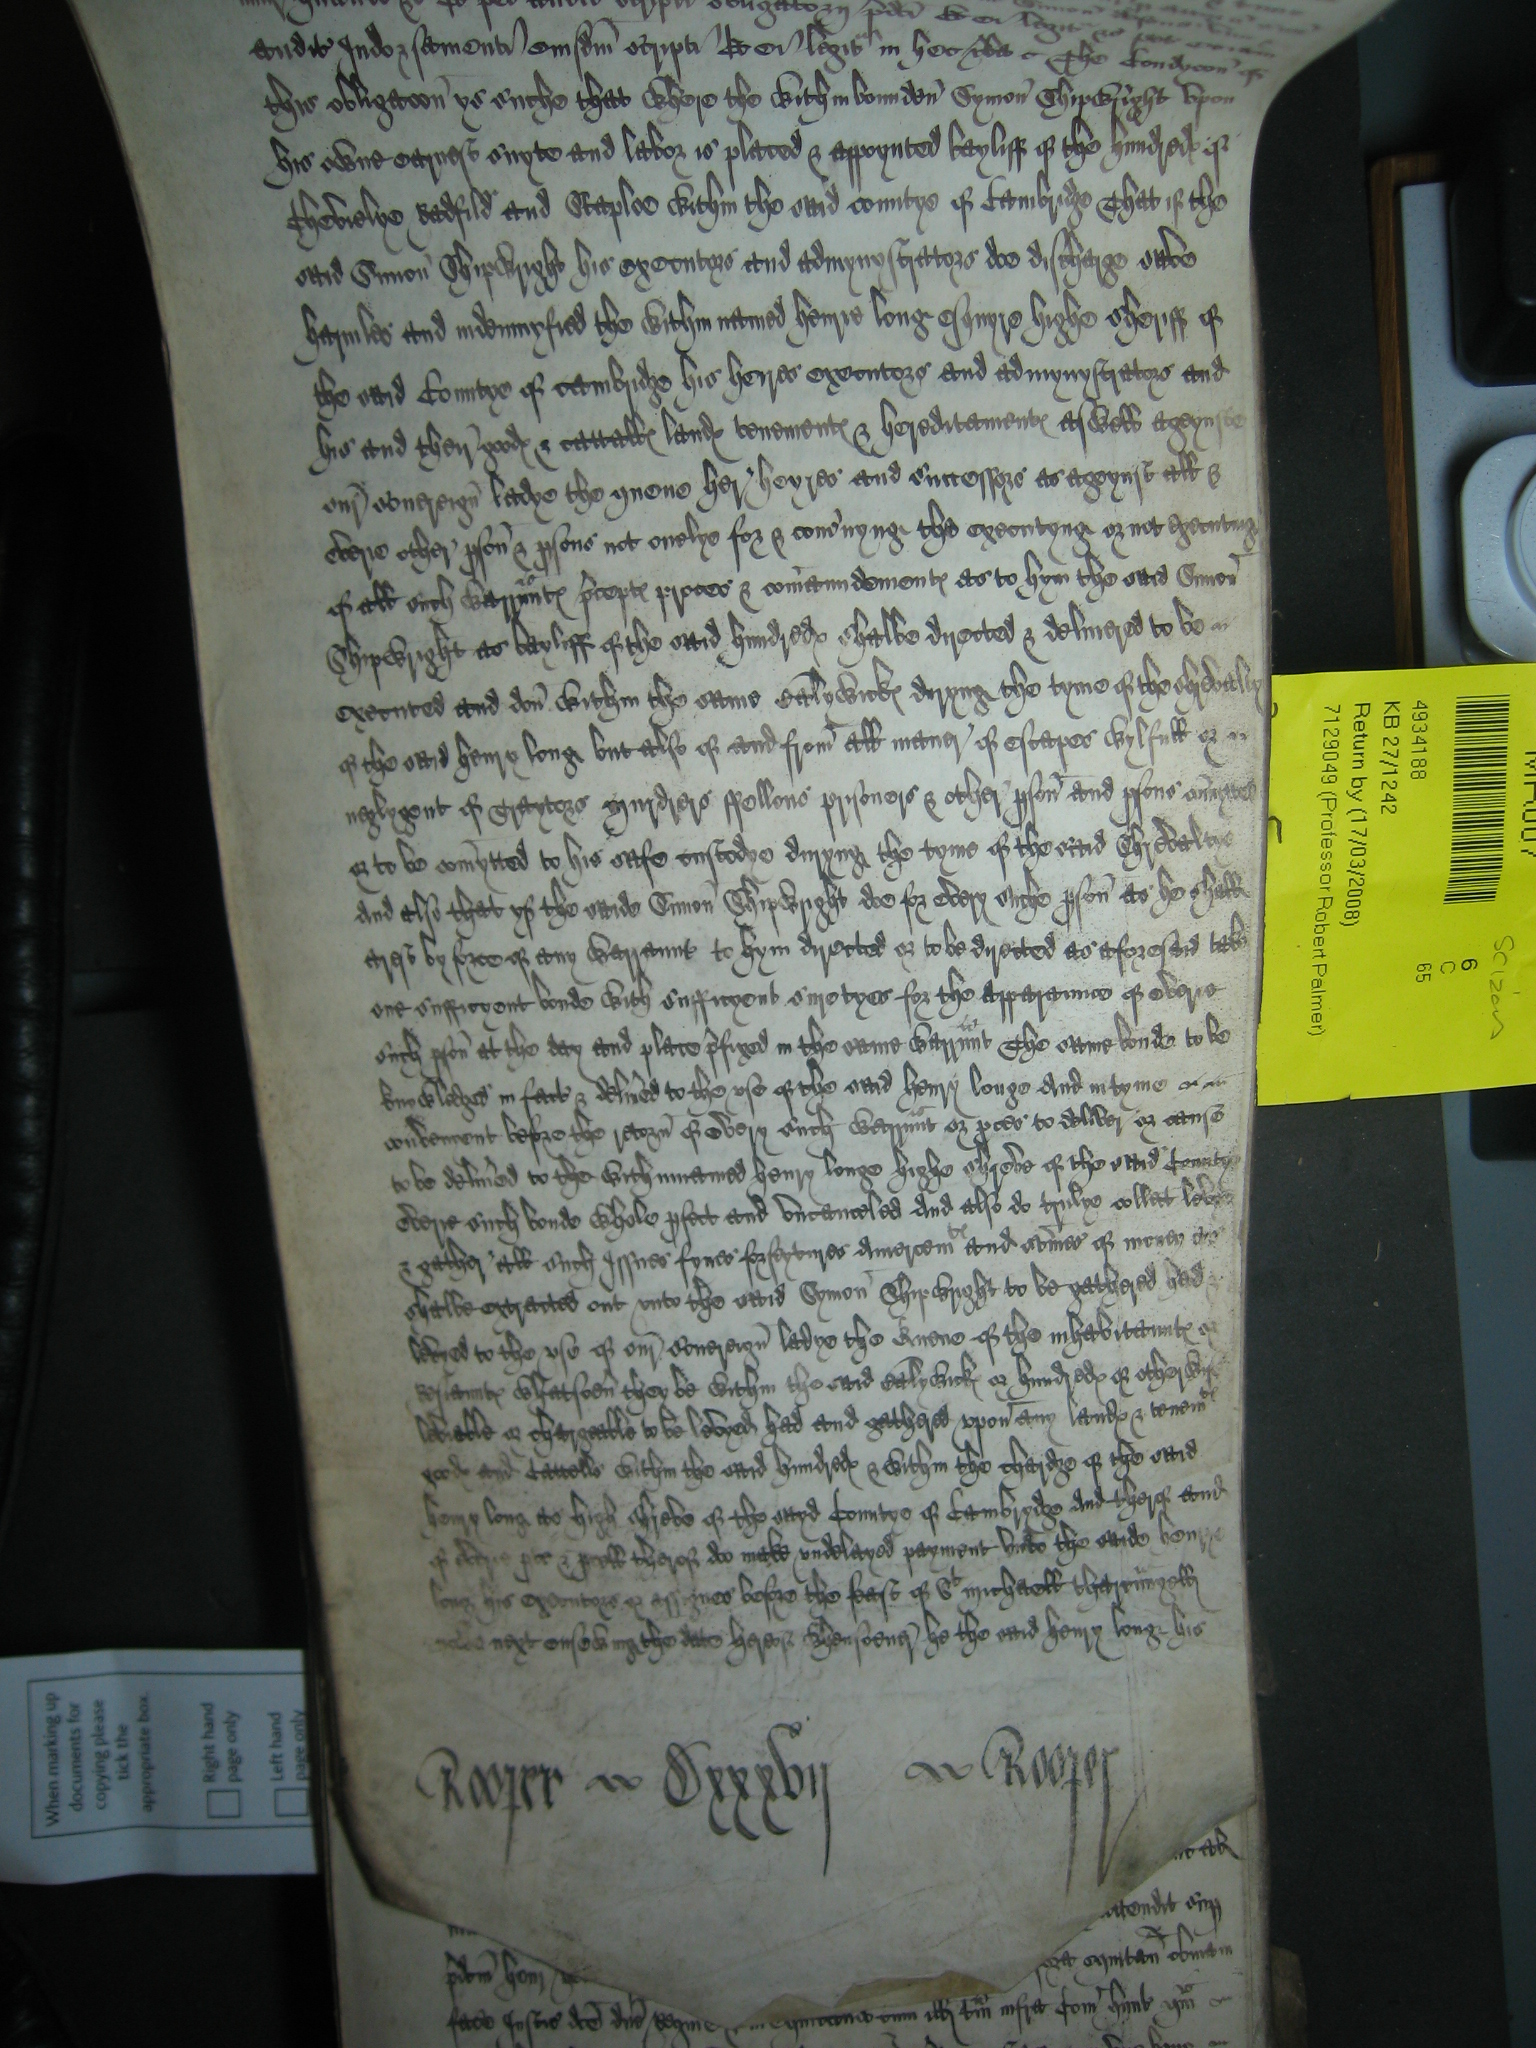 audit Indorsamenti eiusdem scripti Et ei legit in hec verba The Condycon of
this obligacon ys suche that where the within bounden Symon Shipwright vpon
his owne earnest suyte and labor is placed & appoynted bayliff of the hundreds of
Chevelye Radfild and Staploe within the said countye of Cambridge That if the
said Simon Shipwright his executors and admynystrators doe discharge save
harmles and indempnyfied the within named Henrie Long esquyre highe Sheriff of
the said Countye of Cambridge his heires executors and admynystrators and
his and their goodes & cattalles landes tenementes & hereditamentes aswell ageynste
our sovereign ladye the quene her heyres and successors as ageynst all &
everie other pson & psons not onelye for & concernyng the executyng or not executing
of all such warrantes preceptes proces & comaundementes as to hym the said Simon
Shipwright as bayliff of the said hundreds shalbe directed & delivered to be
executed and don within the same Balywickes duryng the tyme of the shrevaltye
of the said Henry Long but also of and from all maner of escapes wylfull or
neglygent of Traytors murdrers ffellons prisoners & other pson and psons comytted
or to be comytted to his salfe custodye duryng the tyme of the said Shrevaltye
And also that yf the saide Simon Shipwright doe for every suche pson as he shall
arest by force of any warraunt to hym directed or to be directed as aforesaid take
one sufficyent bonde with sufficyent suretyes for the apparaunce of everie
such pson at the day and place prefixed in the same warrant The same bonde to be
knowledged in fact & delivered to the use of the said Henry Longe And in tyme
convenient before the retorn of every such warrant or proces to deliver or cause
to be delivered to the within named Henry Longe highe shreve of the said Countye
everie such bonde whole pfect and uncanceled And also do trulye collect levye
& gather all such Issues fynes forfeytures Amerciamtes and somes of money as
shalbe extracted out unto the said Symon Shipwright to be gathered had &
levyed to the use of our sovereign ladye the Quene of the inhabitauntes or
resiauntes whatsoever they be within the said balywickes or hundreds or otherwise
leviable or chargeable to be levyed had and gathered upon any landes & tenemtes
goodes and Cattells within the said hundreds & within the chardge of the said
Henry Long as high shreve of the sayd Countye of Cambrydge And therof and
of everie pte & pcell therof do make undelayed payment unto the saide Henrye
Long his executors or assignes before the feast of St Michaell tharcangell
next ensewing the date hereof whensoever he the said Henry Long his
Rooper CxxxVij Rooper
4934188
KB 27/1242
Return by (17/03/2008)
7129049 (Professor Robert Palmer)
6
C
65
When marking up
documents for
copying please
tick the
appropriate box.
Right hand
page only
Left hand
page only